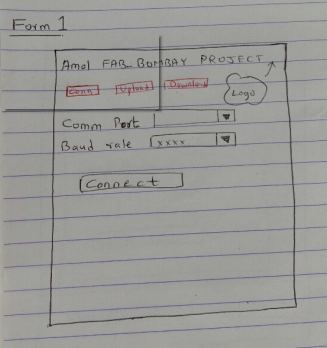 Form 1
Amol FAB BOMBAY PROJECT
Conn Upload Download
Logo
Comm Port
Baud rate xxxx
Connect